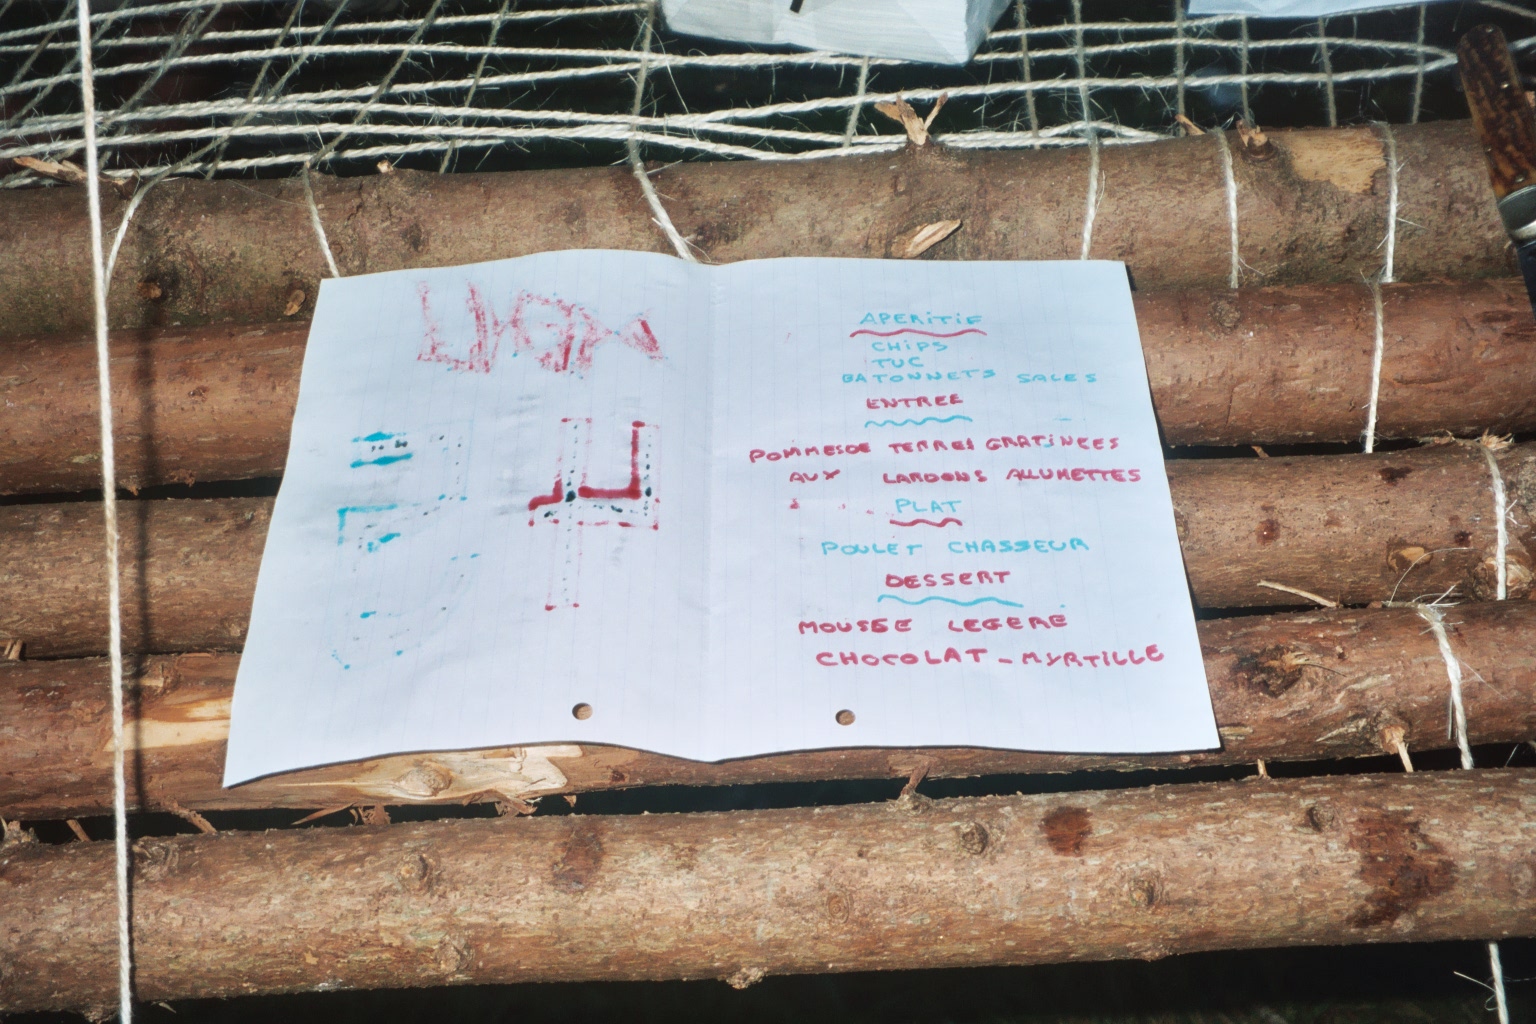 APERITIF
CHIPS
TUC
BATONNETS SALES
ENTREE
POMMESDE TERRES GRATINEES
AUX LARDONS ALLUMETTES
PLAT
POULET CHASSEUR
DESSERT
MOUSSE LEGERE
CHOCOLAT - MYRTILLE